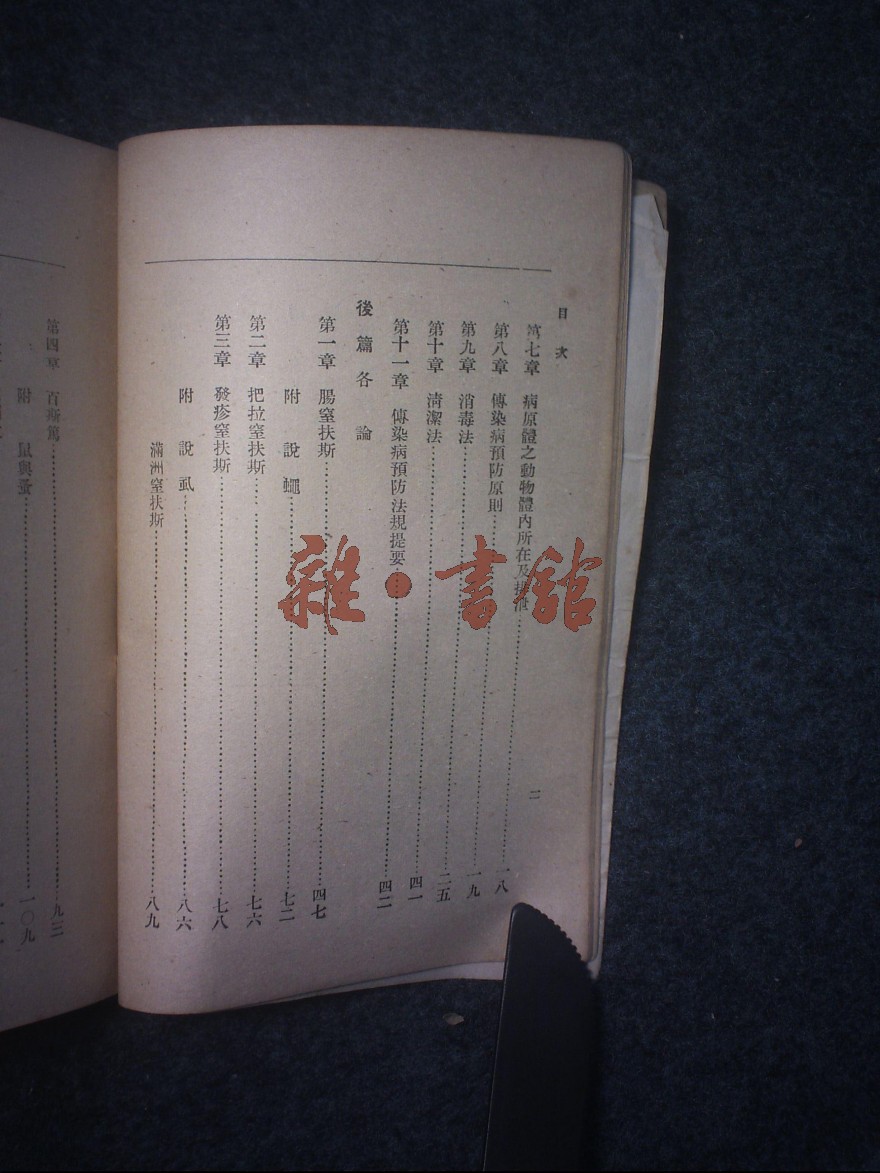 目次
二
第七章 病原體之動物體內所在及排泄……一八
第八章 傳染病預防原則……一九
第九章 消毒法……二五
第十章 淸潔法……四一
第十一章 傳染病預防法規提要……四二
後篇各論
第一章 腸窒扶斯……四七
附說 蠅……七二
第二章 把拉窒扶斯……七六
第三章 發疹窒扶斯……七八
附說 虱……八六
滿洲窒扶斯……八九
第四章 百斯篤……九三
附 鼠與蚤……一〇九
雜·書館